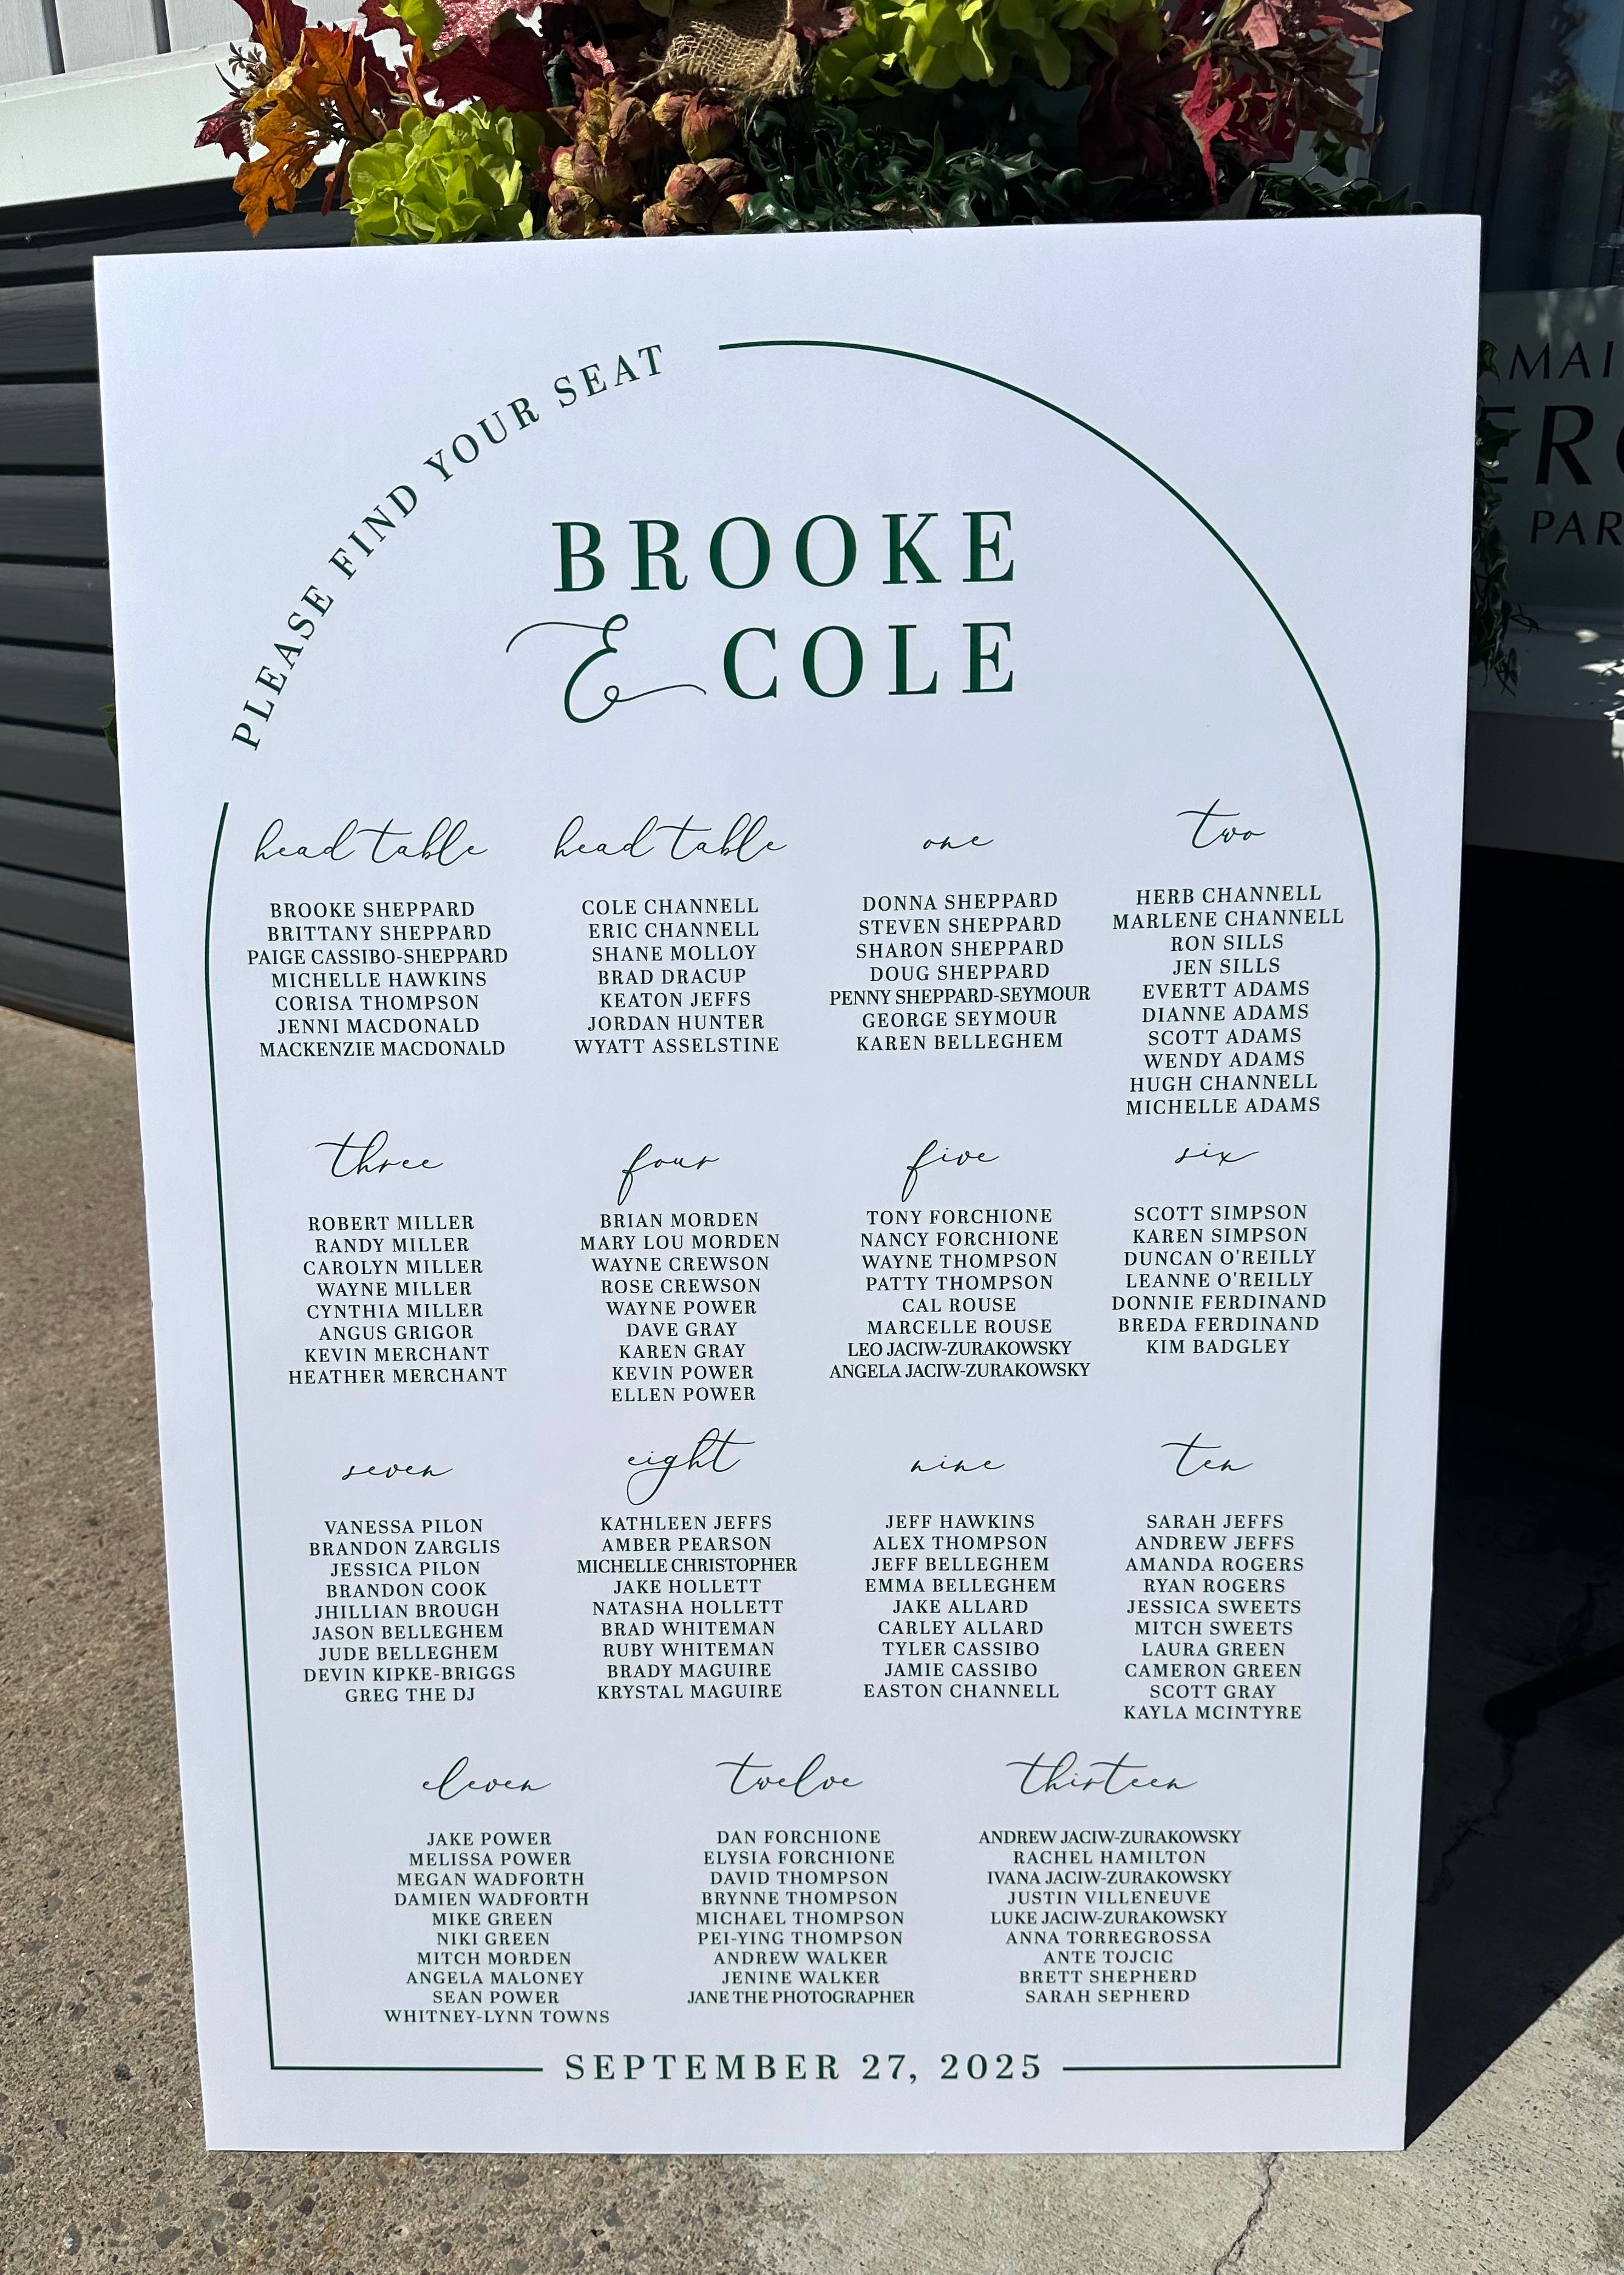 PLEASE FIND YOUR SEAT
BROOKE
& COLE
head table
BROOKE SHEPPARD
BRITTANY SHEPPARD
PAIGE CASSIBO-SHEPPARD
MICHELLE HAWKINS
CORISA THOMPSON
JENNI MACDONALD
MACKENZIE MACDONALD
head table
COLE CHANNELL
ERIC CHANNELL
SHANE MOLLOY
BRAD DRACUP
KEATON JEFFS
JORDAN HUNTER
WYATT ASSELSTINE
one
DONNA SHEPPARD
STEVEN SHEPPARD
SHARON SHEPPARD
DOUG SHEPPARD
PENNY SHEPPARD-SEYMOUR
GEORGE SEYMOUR
KAREN BELLEGHEM
two
HERB CHANNELL
MARLENE CHANNELL
RON SILLS
JEN SILLS
EVERTT ADAMS
DIANNE ADAMS
SCOTT ADAMS
WENDY ADAMS
HUGH CHANNELL
MICHELLE ADAMS
three
ROBERT MILLER
RANDY MILLER
CAROLYN MILLER
WAYNE MILLER
CYNTHIA MILLER
ANGUS GRIGOR
KEVIN MERCHANT
HEATHER MERCHANT
four
BRIAN MORDEN
MARY LOU MORDEN
WAYNE CREWSON
ROSE CREWSON
WAYNE POWER
DAVE GRAY
KAREN GRAY
KEVIN POWER
ELLEN POWER
five
TONY FORCHIONE
NANCY FORCHIONE
WAYNE THOMPSON
PATTY THOMPSON
CAL ROUSE
MARCELLE ROUSE
LEO JACIW-ZURAKOWSKY
ANGELA JACIW-ZURAKOWSKY
six
SCOTT SIMPSON
KAREN SIMPSON
DUNCAN O'REILLY
LEANNE O'REILLY
DONNIE FERDINAND
BREDA FERDINAND
KIM BADGLEY
seven
VANESSA PILON
BRANDON ZARGLIS
JESSICA PILON
BRANDON COOK
JHILLIAN BROUGH
JASON BELLEGHEM
JUDE BELLEGHEM
DEVIN KIPKE-BRIGGS
GREG THE DJ
eight
KATHLEEN JEFFS
AMBER PEARSON
MICHELLE CHRISTOPHER
JAKE HOLLETT
NATASHA HOLLETT
BRAD WHITEMAN
RUBY WHITEMAN
BRADY MAGUIRE
KRYSTAL MAGUIRE
nine
JEFF HAWKINS
ALEX THOMPSON
JEFF BELLEGHEM
EMMA BELLEGHEM
JAKE ALLARD
CARLEY ALLARD
TYLER CASSIBO
JAMIE CASSIBO
EASTON CHANNELL
ten
SARAH JEFFS
ANDREW JEFFS
AMANDA ROGERS
RYAN ROGERS
JESSICA SWEETS
MITCH SWEETS
LAURA GREEN
CAMERON GREEN
SCOTT GRAY
KAYLA MCINTYRE
eleven
JAKE POWER
MELISSA POWER
MEGAN WADFORTH
DAMIEN WADFORTH
MIKE GREEN
NIKI GREEN
MITCH MORDEN
ANGELA MALONEY
SEAN POWER
WHITNEY-LYNN TOWNS
twelve
DAN FORCHIONE
ELYSIA FORCHIONE
DAVID THOMPSON
BRYNNE THOMPSON
MICHAEL THOMPSON
PEI-YING THOMPSON
ANDREW WALKER
JENINE WALKER
JANE THE PHOTOGRAPHER
thirteen
ANDREW JACIW-ZURAKOWSKY
RACHEL HAMILTON
IVANA JACIW-ZURAKOWSKY
JUSTIN VILLENEUVE
LUKE JACIW-ZURAKOWSKY
ANNA TORREGROSSA
ANTE TOJCIC
BRETT SHEPHERD
SARAH SEPHERD
SEPTEMBER 27, 2025